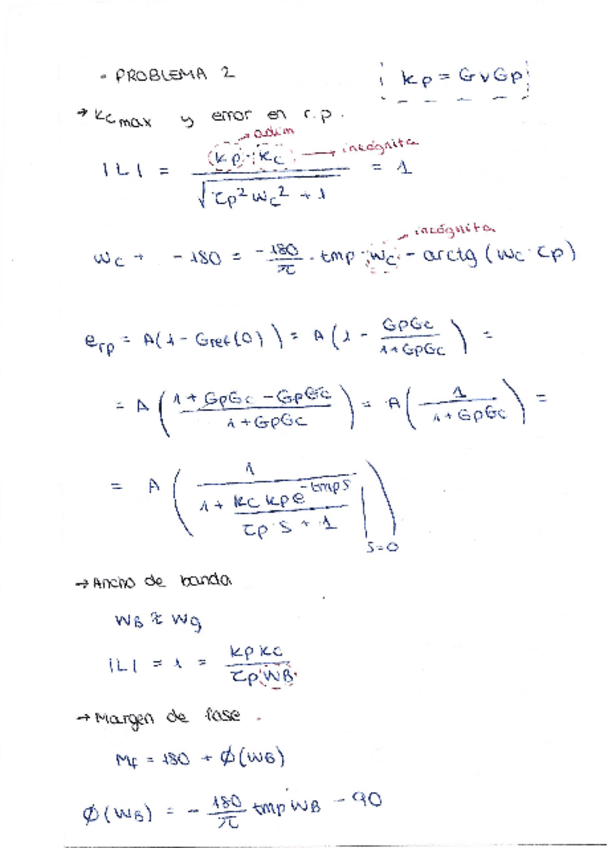 - PROBLEMA 2
kp = GvGp
→ Kcmax y error en r.p.
adim
|L| = kp · kc / √(τp² wc² + 1) = 1
→ incógnita
incógnita
wc → -180 = -180/π · tmp · wc - arctg (wc · τp)
erp = A(1 - Gref(0)) = A (1 - GpGc / 1+GpGc) =
= A (1 + GpGc - GpGc / 1+GpGc) = A (1 / 1+GpGc) =
= A (1 / 1 + kc kp e^-tmps / τp · s + 1 |s=0)
→ Ancho de banda
WB ≈ wg
|L| = 1 = kp kc / τp WB
→ Margen de fase.
Mf = 180 + Ø(WB)
Ø(WB) = - 180/π tmp WB - 90